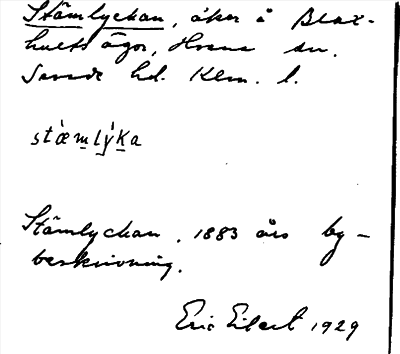 Stämlyckan, åker å Blax-
hults ägor, Hvena sn.
Sevede hd. Klm. l.
stæmlyKa
Stämlyckan, 1883 års by-
beskrivning.
Eric Eilert 1929